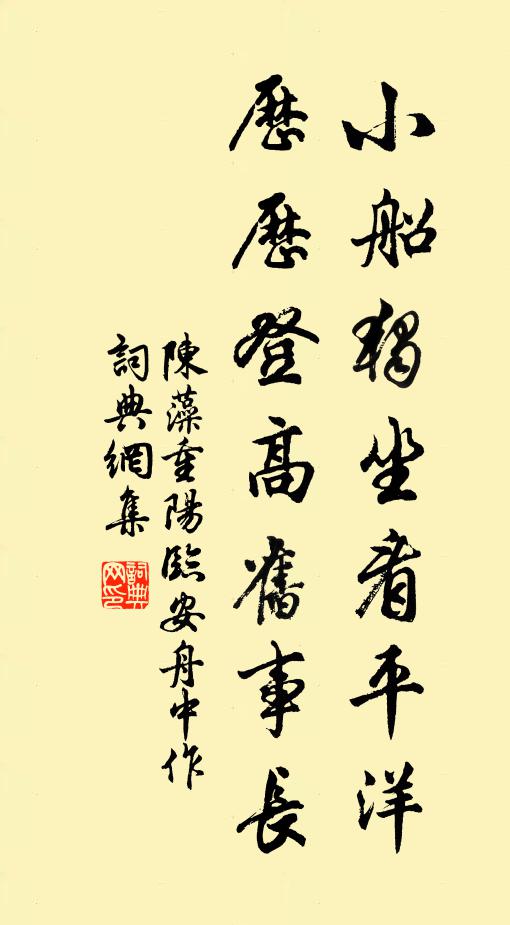 小船獨坐看平洋
歷歷登高舊事長
陳藻重陽臨安舟中作
詞典網集
詞典
网印